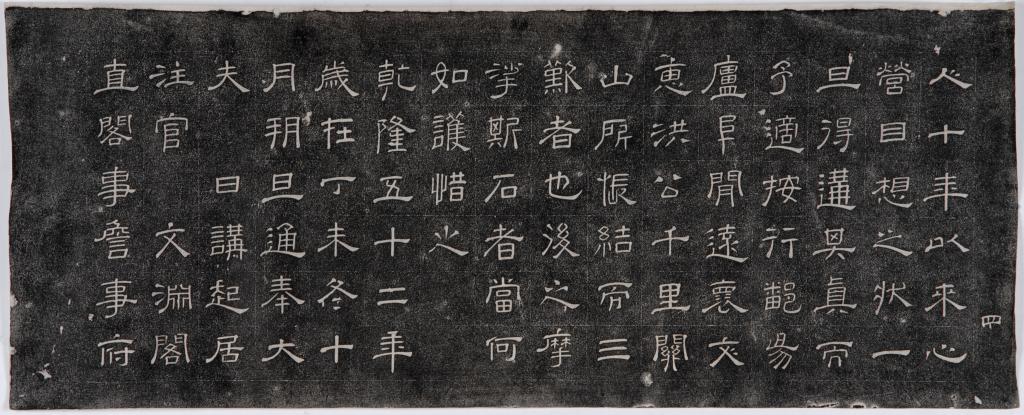 四
十年以來心
營目想之狀一
旦得遘其真而
予適按行鄱昜
廬阜閒遠褱文
惠洪公千里關
山所悵結而三
歎者也後之摩
挲斯石者當何
如護惜之
乾隆五十二年
歲在丁未冬十
月朔旦通奉大
夫 日講起居
注官 文淵閣
直閣事詹事府